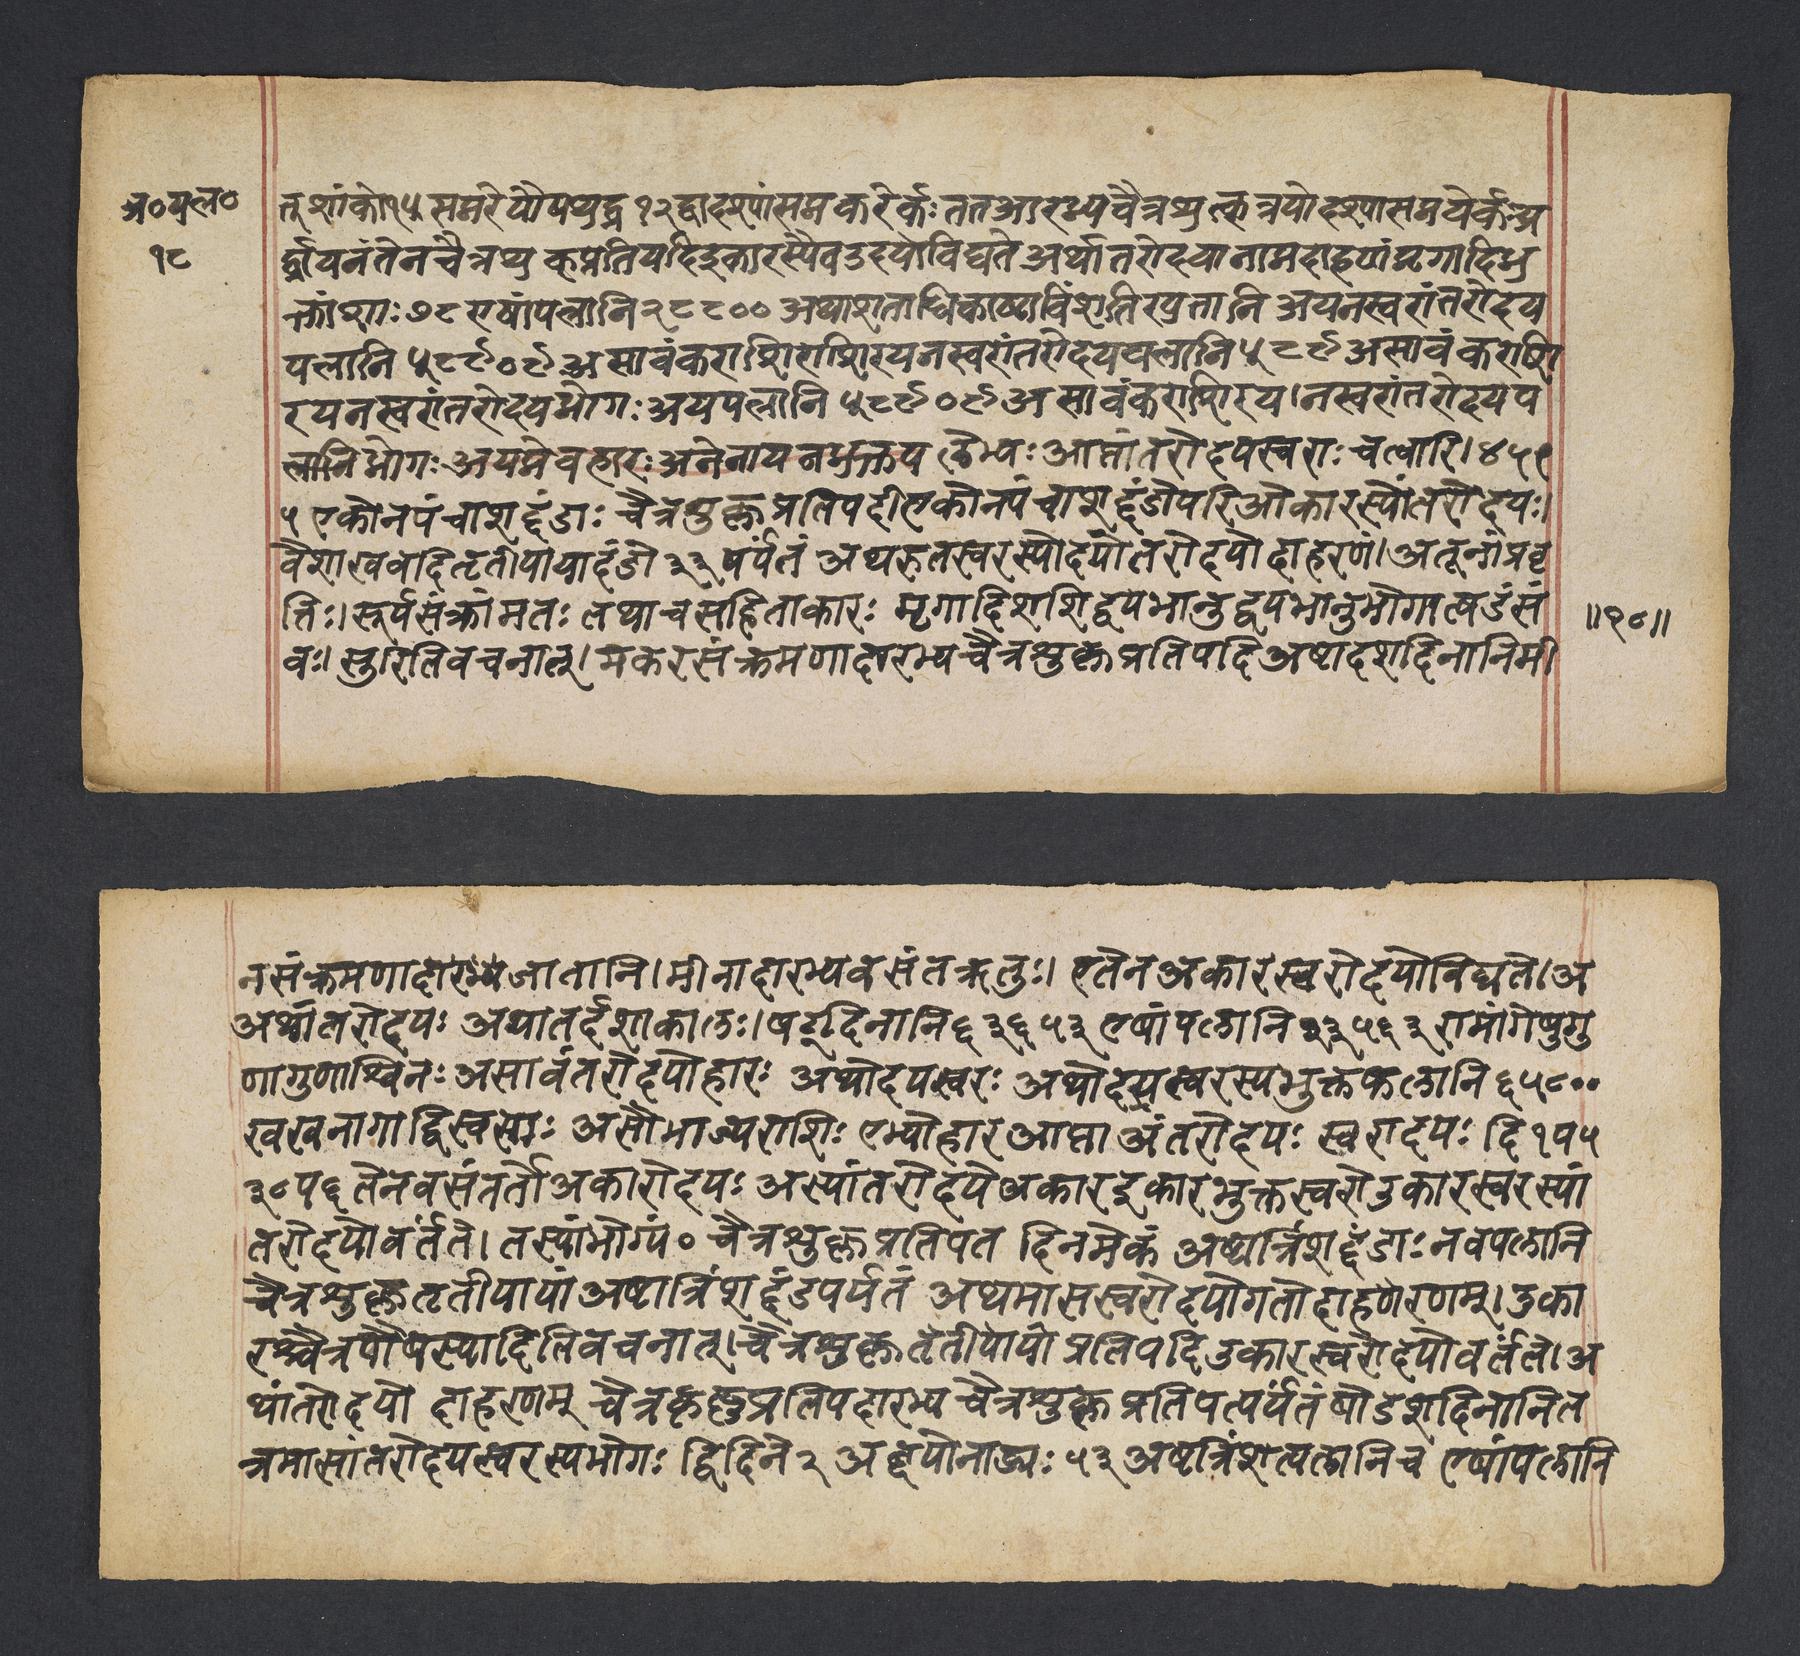 ज०पल०
१८
त् शांको१५ समरे पौषप्यद्व १२ द्वादश्पांसमकरेर्कः तत आरभ्य चैत्रश्रुत्कत्रयोदश्पासमयेर्कः प्र
र्द्धायनंतेनचैत्रप्यकप्रतिपदिइकारस्पैवउदयोविद्यते अर्थातरोदया
क्तांशाः ७८ एषांपलानि २८८०० अथाशताधिकाष्टाविंशति अयनस्वरांतरोदय
पलानि ५८९०९ असावंकराशिरयनस्वरांतरोदयपलानि ५८९ असावंकराशि
रयनस्वरांतरोदयभोगः अयपलानि ५८९०९ असावंकराशिरय।नस्वरांतरोदयप
लानिभोगः अयमेवहारः अनेनायनभुक्तपलेभ्यः आप्तांतरोदयस्वराः चत्वारि।४५९
५ एकोनपंचाशद्दंडाः चैत्रशुक्लप्रतिपदीएकोनपंचाशद्दंडोपरिओकारस्पांतरोदयः।
वैशाखवदितृतीपायादंडो ३३ पर्पतं अथऋतस्वरस्पोदयांतरोदयोदाहरणं।अतूनांप्रवृ
त्तिः।सूर्पसंक्रांमतः तथाचसंहिताकारः मृगादिशशिद्वयभानुद्वयभानुभोगात्षडंसं
॥१८॥
वः।स्तुरितिवचनात्।मकरसंक्रमणादारभ्यचैत्रशुक्लप्रतिपदिअष्टादशदिनानिमी
नसंक्रमणादारभ्यजातानि।मीनादारभ्यवसंतऋतुः। एतेनअकारस्वरोदयोविद्यते।अ
अर्थांतरोदयः अथातर्द्दशाकालः।षट्दिनानि ६ ३६ ५३ एषांपलानि २३५६३ रामांगेषुगु
णागुणाश्विनः असावंतरोदयोहारः अथोदयस्वरः अथोदयस्वरस्पभुक्तफलानि ६५८००
खखनागाद्विस्वसाः असौभाज्यराशिः एभ्योहारआप्ता अंतरोदयः स्वरादयः दि १ प ५
३८ प ६ तेनवसंतर्तौअकारोदयः अस्पांतरोदयेअकारइकारभुक्तस्वरौउकारस्वरस्पां
तरोदयोवर्तते।तस्पांभोग्पं० चैत्रशुक्लप्रतिपत दिनमेकं अष्टात्रिंशद्दंडाः नवपलानि
चैत्रशुक्लतृतीपायां अष्टात्रिंशद्दंडपर्पतं अथमासस्वरोदयोगतोदाहणेरणम्।उका
रश्चैत्रपौषस्पादितिवचनात्।चैत्रशुक्लतृतीपायां प्रतिपदिउकारस्वरोदयोवर्तते।अ
थांतरोदयो दाहरणम् चैत्रकृष्णप्रतिपदारभ्य चैत्रशुक्लप्रतिपत्पर्पतंषोडशदिनानित
त्रमासांतरोदयस्वरस्पभोगः द्विदिने २ नाड्यः ५३ अष्टत्रिंशत्पलानिच एषांपलानि